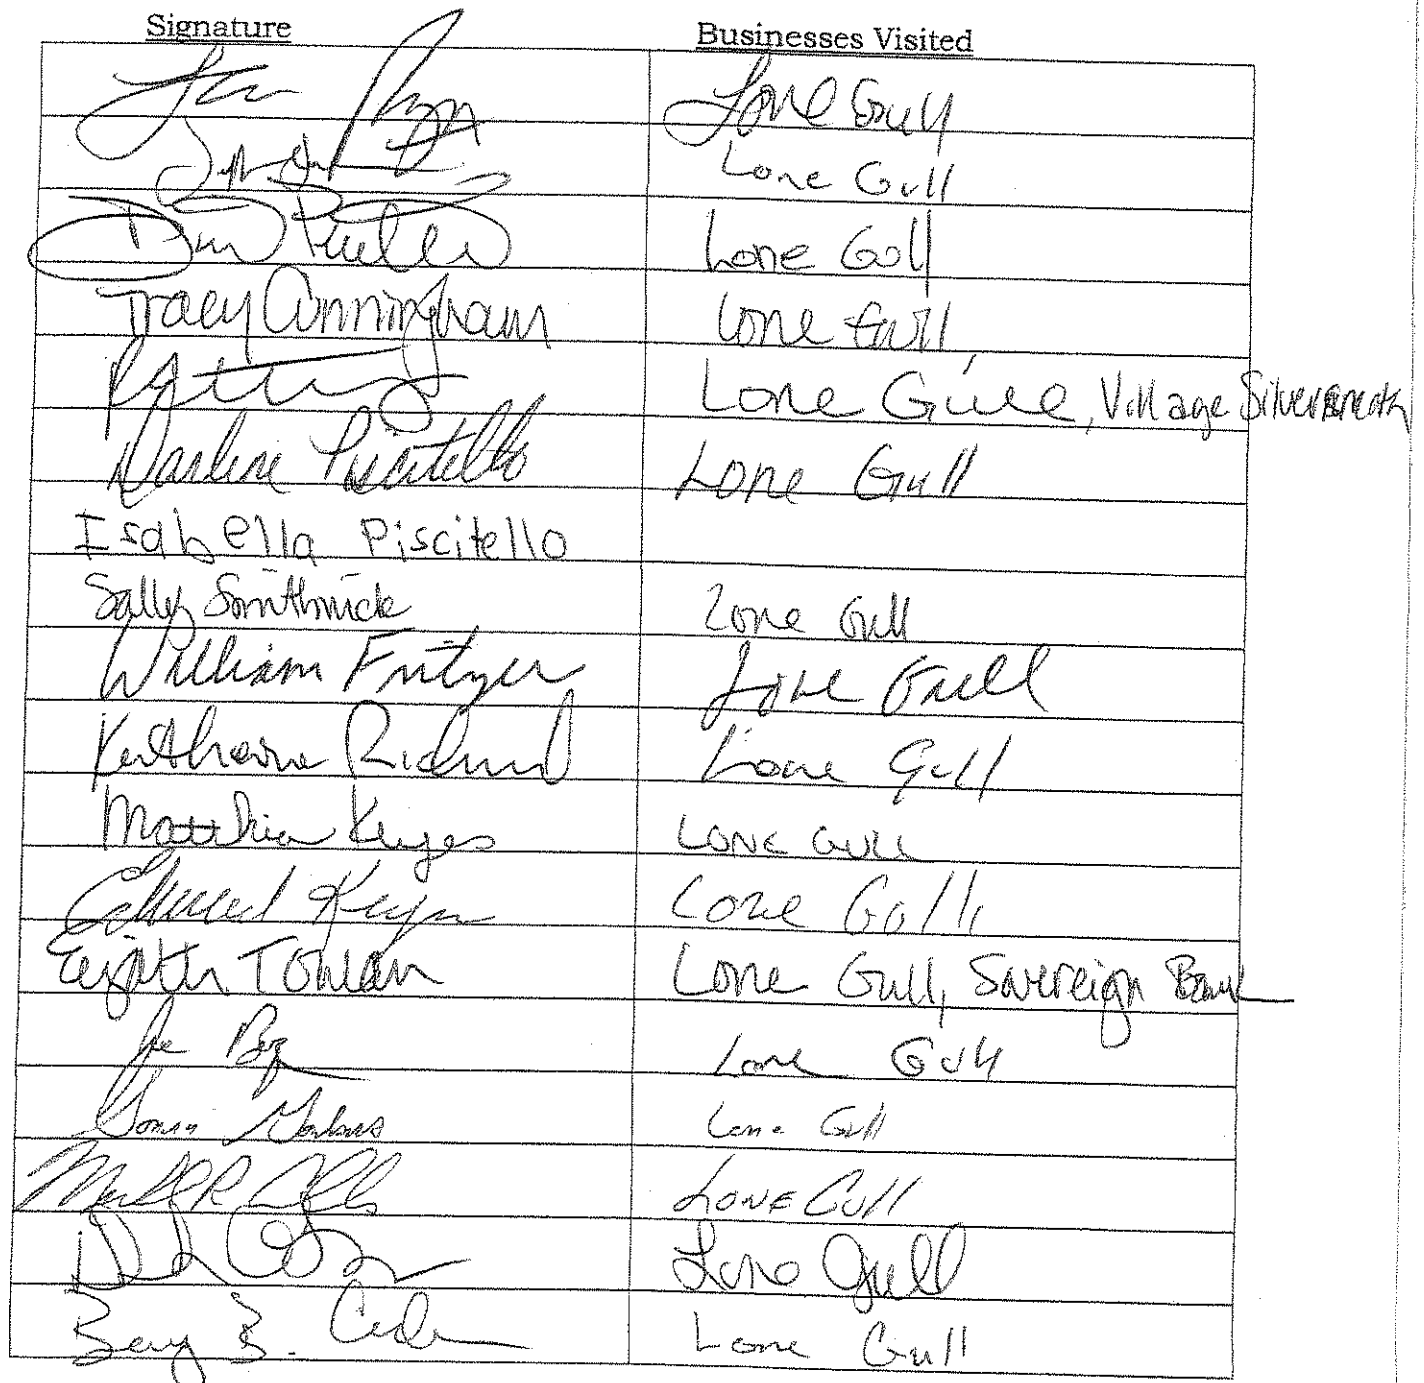 Signature Businesses Visited
Lone Gull
Lone Gull
Dan Lone Gull
Tracy Cunningham Lone Gull
Lone Gull, Village Silversmith
Darlene Piscitello Lone Gull
Isabella Piscitello
Sally Smithwick Lone Gull
William Lone Gull
Katharine Lone Gull
Matthew Keyes Lone Gull
Edward Keyes Lone Gull
Lone Gull, Sovereign Bank
Joe Lone Gull
Lone Gull
Mark R Lone Gull
Lone Gull
B. Lone Gull